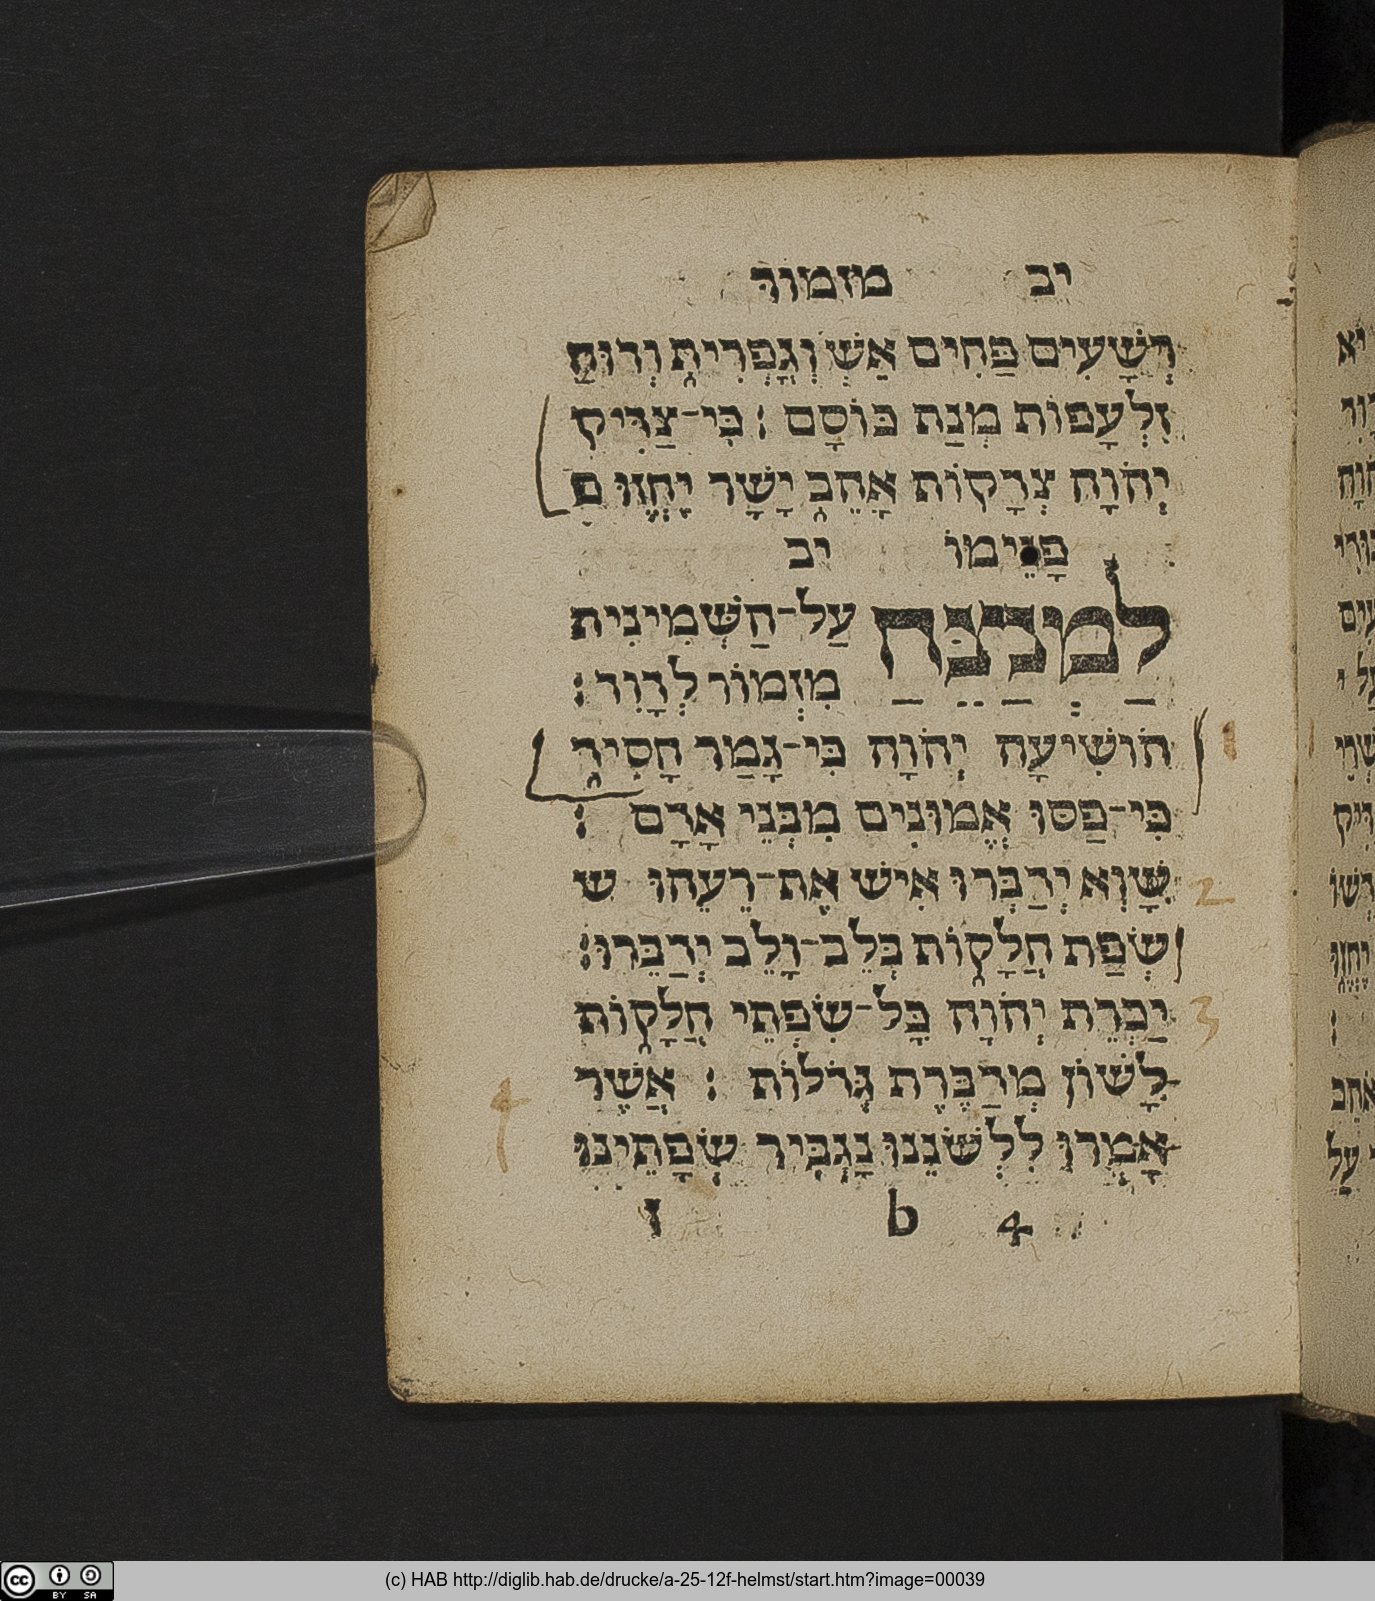 יב מזמור
רְשָׁעִים פַּחִים אֵשׁ וְגָפְרִית וְרוּחַ
זִלְעָפוֹת מְנָת כּוֹסָם : כִּי־צַדִּיק
יְהֹוָה צְדָקוֹת אָהֵב יָשָׁר יֶחֱזוּ פ
פָנֵימוֹ יב
לַמְנַצֵּחַ עַל־הַשְּׁמִינִית
מִזְמוֹר לְדָוִד :
הוֹשִׁיעָה יְהֹוָה כִּי־גָמַר חָסִיד
כִּי־פַסּוּ אֱמוּנִים מִבְּנֵי אָדָם :
שָׁוְא יְדַבְּרוּ אִישׁ אֶת־רֵעֵהוּ ש
שְׂפַת חֲלָקוֹת בְּלֵב־וָלֵב יְדַבֵּרוּ :
יַכְרֵת יְהֹוָה כָּל־שִׂפְתֵי חֲלָקוֹת
לָשׁוֹן מְדַבֶּרֶת גְּדֹלוֹת : אֲשֶׁר
אָמְרוּ לִלְשֹׁנֵנוּ נַגְבִּיר שְׂפָתֵינוּ
4 b ו
1
2
3
4
(c) HAB http://diglib.hab.de/drucke/a-25-12f-helmst/start.htm?image=00039
cc BY SA